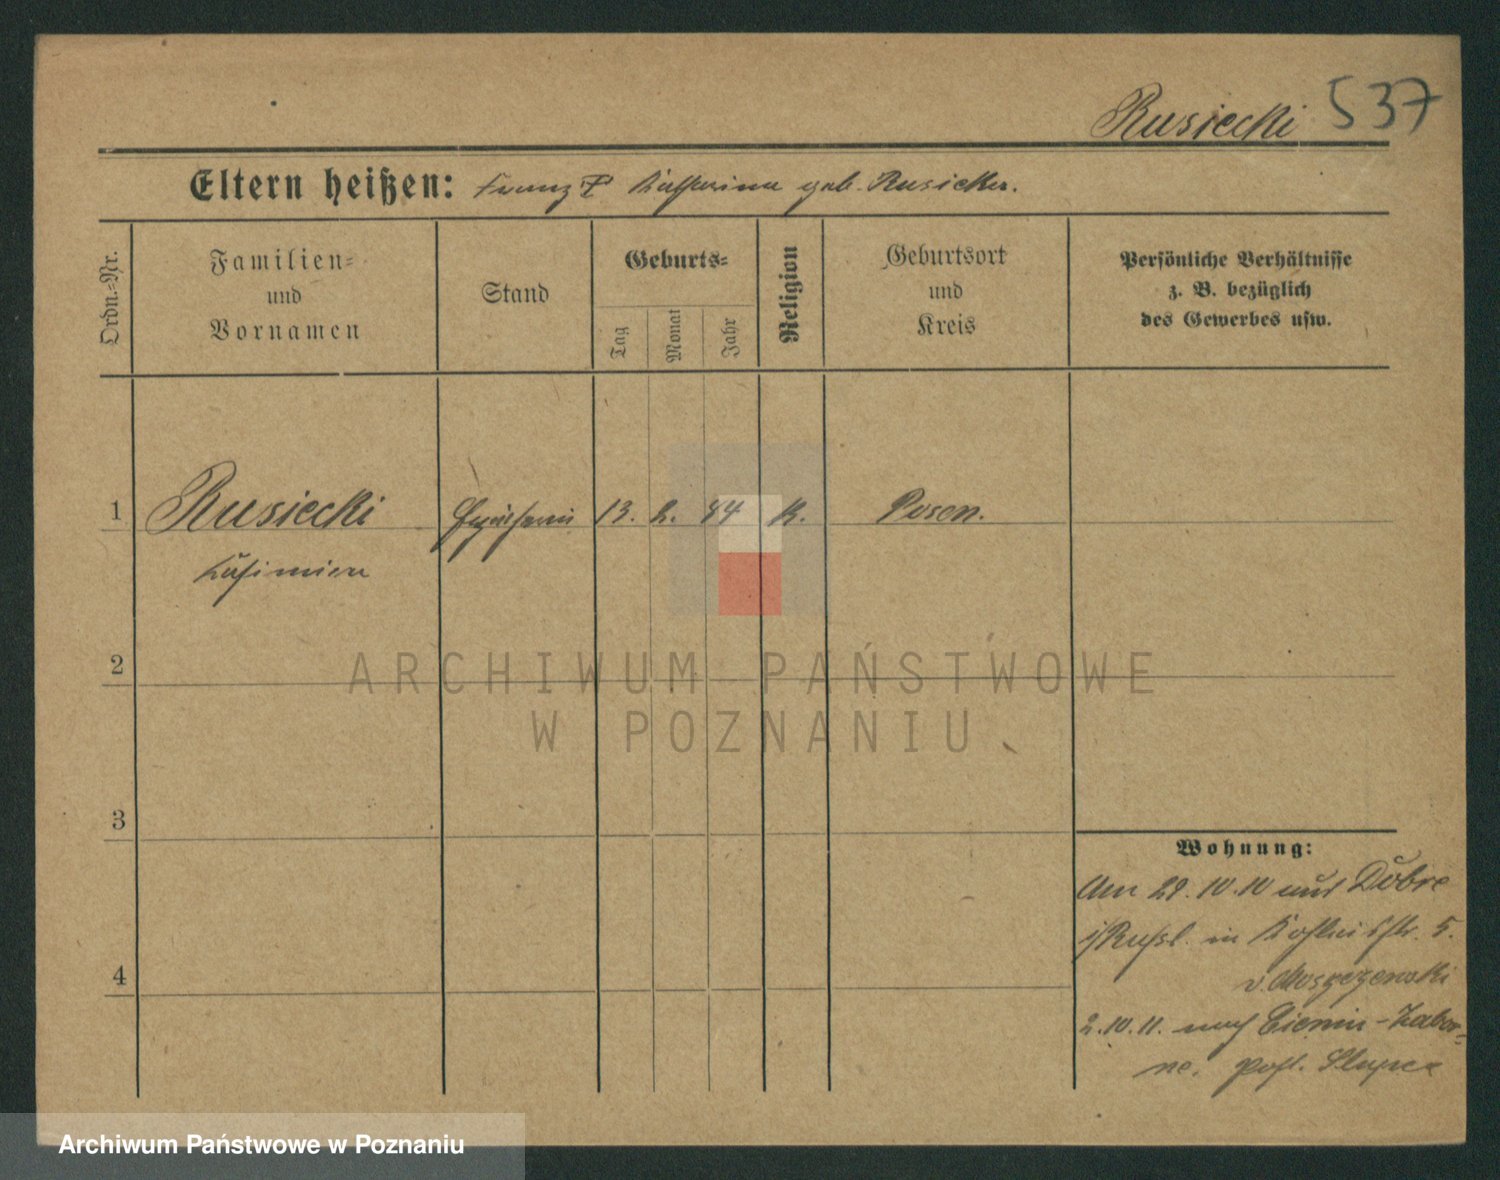 Rusiecki 537
Eltern heißen: Franz Katharina geb. Rusiecka.
Ordn.-Nr.
Familien-
und
Vornamen
Stand
Geburts-
Tag
Monat
Jahr
Religion
Geburtsort
und
Kreis
Persönliche Verhältnisse
z. B. bezüglich
des Gewerbes usw.
1 Rusiecki 13. 2. 84 K. Posen.
2
ARCHIWUM PAŃSTWOWE
W POZNANIU
3
4
Wohnung:
Am 29.10.10 aus Dobre
i/Russl. in str. 5.
v. Moszczenski
2.10.11. nach Cienin-Zabor-
ne. Post. Slupca
Archiwum Państwowe w Poznaniu